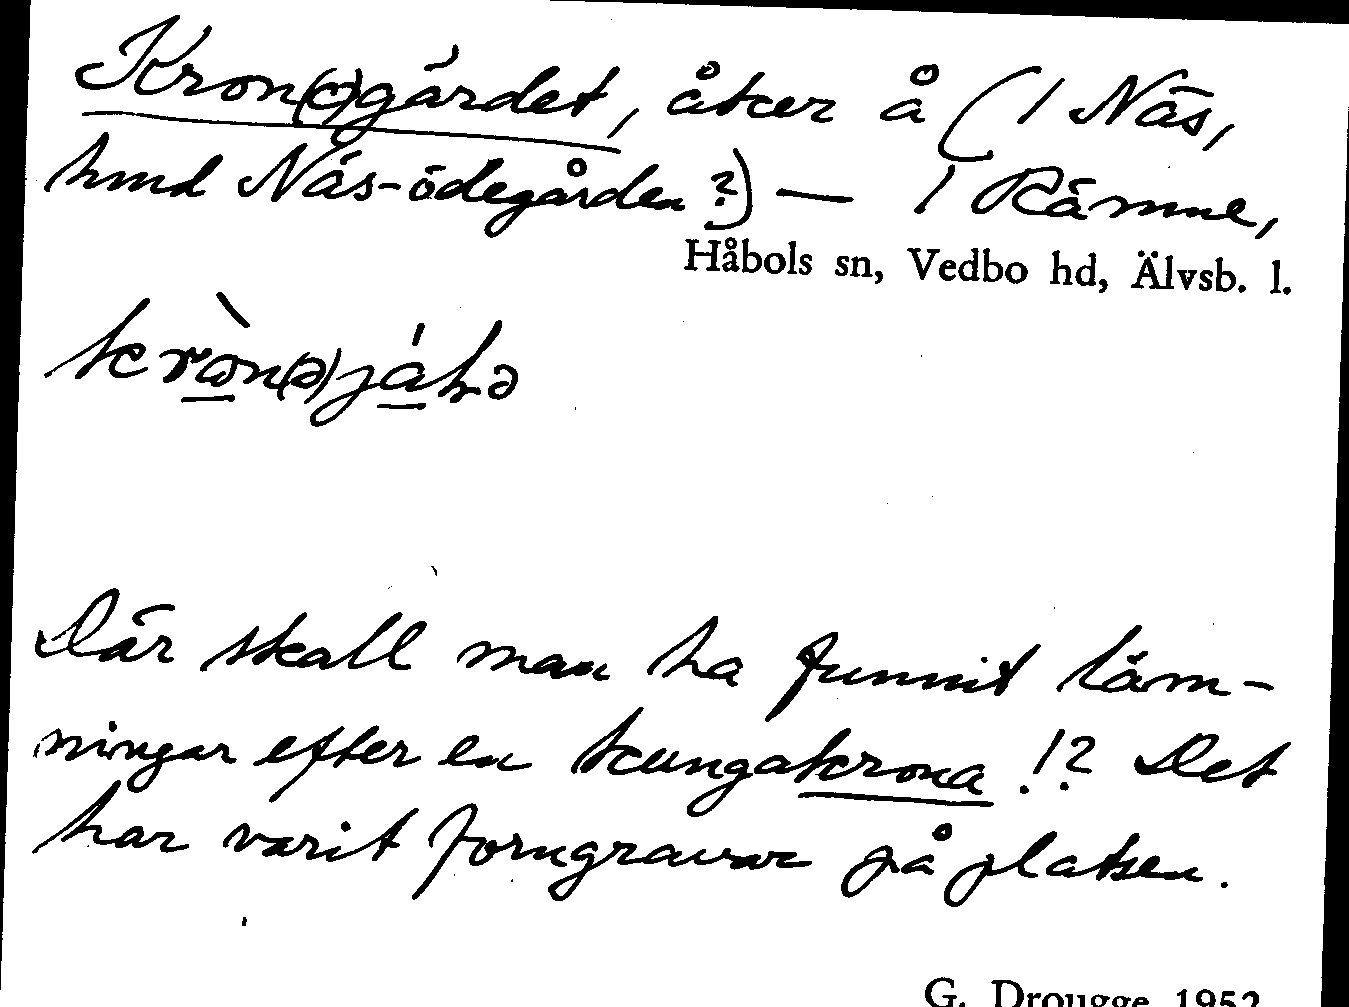 Kron(o)gärdet, åker å (1 Näs,
hmd Näs-ödegården?) — 1 Rämne,
Håbols sn, Vedbo hd, Älvsb. l.
Där skall man ha funnit läm-
ningar efter en kungakrona!? Det
har varit forngravar på platsen.
G. Drougge 1952